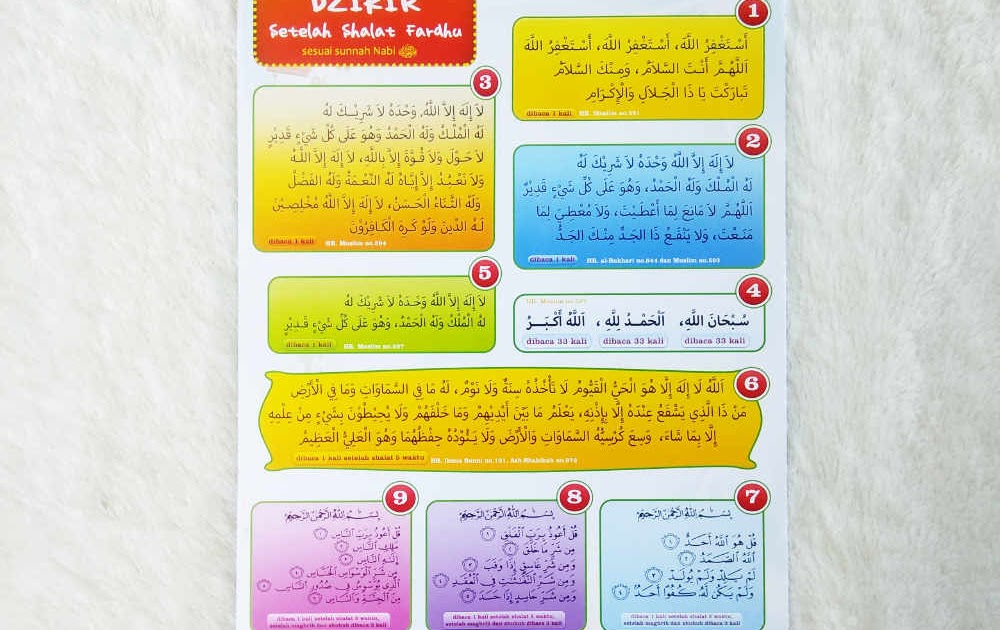 DZIKIR
Setelah Shalat Fardhu
sesuai sunnah Nabi ﷺ
1
أَسْتَغْفِرُ اللَّهَ، أَسْتَغْفِرُ اللَّهَ، أَسْتَغْفِرُ اللَّهَ
اَللَّهُمَّ أَنْتَ السَّلاَمُ، وَمِنْكَ السَّلاَمُ
تَبَارَكْتَ يَا ذَا الْجَلاَلِ وَالْإِكْرَامِ
dibaca 1 kali HR. Muslim no.591
2
لاَ إِلَهَ إِلاَّ اللَّهُ وَحْدَهُ لاَ شَرِيْكَ لَهُ
لَهُ الْمُلْكُ وَلَهُ الْحَمْدُ، وَهُوَ عَلَى كُلِّ شَيْءٍ قَدِيْرٌ
اَللَّهُمَّ لاَ مَانِعَ لِمَا أَعْطَيْتَ، وَلاَ مُعْطِيَ لِمَا
مَنَعْتَ، وَلاَ يَنْفَعُ ذَا الْجَدِّ مِنْكَ الْجَدُّ
dibaca 1 kali HR. al-Bukhari no.844 dan Muslim no.593
3
لاَ إِلَهَ إِلاَّ اللَّهُ، وَحْدَهُ لاَ شَرِيْكَ لَهُ
لَهُ الْمُلْكُ وَلَهُ الْحَمْدُ وَهُوَ عَلَى كُلِّ شَيْءٍ قَدِيْرٍ
لاَ حَوْلَ وَلاَ قُوَّةَ إِلاَّ بِاللَّهِ، لاَ إِلَهَ إِلاَّ اللَّهُ
وَلاَ نَعْبُدُ إِلاَّ إِيَّاهُ لَهُ النِّعْمَةُ وَلَهُ الْفَضْلُ
وَلَهُ الثَّنَاءُ الْحَسَنُ، لاَ إِلَهَ إِلاَّ اللَّهُ مُخْلِصِيْنَ
لَهُ الدِّيْنَ وَلَوْ كَرِهَ الْكَافِرُوْنَ
dibaca 1 kali HR. Muslim no.594
4
HR. Muslim no.597
سُبْحَانَ اللَّهِ، اَلْحَمْدُ لِلَّهِ، اَللَّهُ أَكْبَرُ
dibaca 33 kali dibaca 33 kali dibaca 33 kali
5
لاَ إِلَهَ إِلاَّ اللَّهُ وَحْدَهُ لاَ شَرِيْكَ لَهُ
لَهُ الْمُلْكُ وَلَهُ الْحَمْدُ، وَهُوَ عَلَى كُلِّ شَيْءٍ قَدِيْرٍ
dibaca 1 kali HR. Muslim no.597
6
اَللَّهُ لَا إِلَهَ إِلَّا هُوَ الْحَيُّ الْقَيُّومُ لَا تَأْخُذُهُ سِنَةٌ وَلَا نَوْمٌ، لَهُ مَا فِي السَّمَاوَاتِ وَمَا فِي الْأَرْضِ
مَنْ ذَا الَّذِي يَشْفَعُ عِنْدَهُ إِلَّا بِإِذْنِهِ، يَعْلَمُ مَا بَيْنَ أَيْدِيْهِمْ وَمَا خَلْفَهُمْ وَلَا يُحِيْطُوْنَ بِشَيْءٍ مِنْ عِلْمِهِ
إِلَّا بِمَا شَاءَ، وَسِعَ كُرْسِيُّهُ السَّمَاوَاتِ وَالْأَرْضَ وَلَا يَئُوْدُهُ حِفْظُهُمَا وَهُوَ الْعَلِيُّ الْعَظِيْمُ
dibaca 1 kali setelah shalat 5 waktu HR. Ibnus Sunni no.121, Ash-Shahihah no.972
7
بِسْمِ اللَّهِ الرَّحْمَنِ الرَّحِيمِ
قُلْ هُوَ اللَّهُ أَحَدٌ ١
اللَّهُ الصَّمَدُ ٢
لَمْ يَلِدْ وَلَمْ يُولَدْ ٣
وَلَمْ يَكُنْ لَهُ كُفُوًا أَحَدٌ ٤
dibaca 1 kali setelah shalat 5 waktu,
setelah maghrib dan shubuh dibaca 3 kali
8
بِسْمِ اللَّهِ الرَّحْمَنِ الرَّحِيمِ
قُلْ أَعُوذُ بِرَبِّ الْفَلَقِ ١
مِنْ شَرِّ مَا خَلَقَ ٢
وَمِنْ شَرِّ غَاسِقٍ إِذَا وَقَبَ ٣
وَمِنْ شَرِّ النَّفَّاثَاتِ فِي الْعُقَدِ ٤
وَمِنْ شَرِّ حَاسِدٍ إِذَا حَسَدَ ٥
dibaca 1 kali setelah shalat 5 waktu,
setelah maghrib dan shubuh dibaca 3 kali
9
بِسْمِ اللَّهِ الرَّحْمَنِ الرَّحِيمِ
قُلْ أَعُوذُ بِرَبِّ النَّاسِ ١
مَلِكِ النَّاسِ ٢
إِلَهِ النَّاسِ ٣
مِنْ شَرِّ الْوَسْوَاسِ الْخَنَّاسِ ٤
الَّذِي يُوَسْوِسُ فِي صُدُورِ النَّاسِ ٥
مِنَ الْجِنَّةِ وَالنَّاسِ ٦
dibaca 1 kali setelah shalat 5 waktu,
setelah maghrib dan shubuh dibaca 3 kali